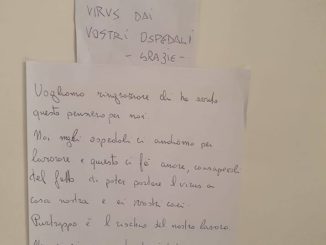 VIRUS DAI
VOSTRI OSPEDALI
- GRAZIE -
Vogliamo ringraziare chi ha avuto
questo pensiero per noi.
Noi negli ospedali ci andiamo per
lavorare e questo ci fa onore, consapevoli
del fatto di poter portare il virus a
casa nostra e ai nostri cari.
Purtroppo è il rischio del nostro lavoro.